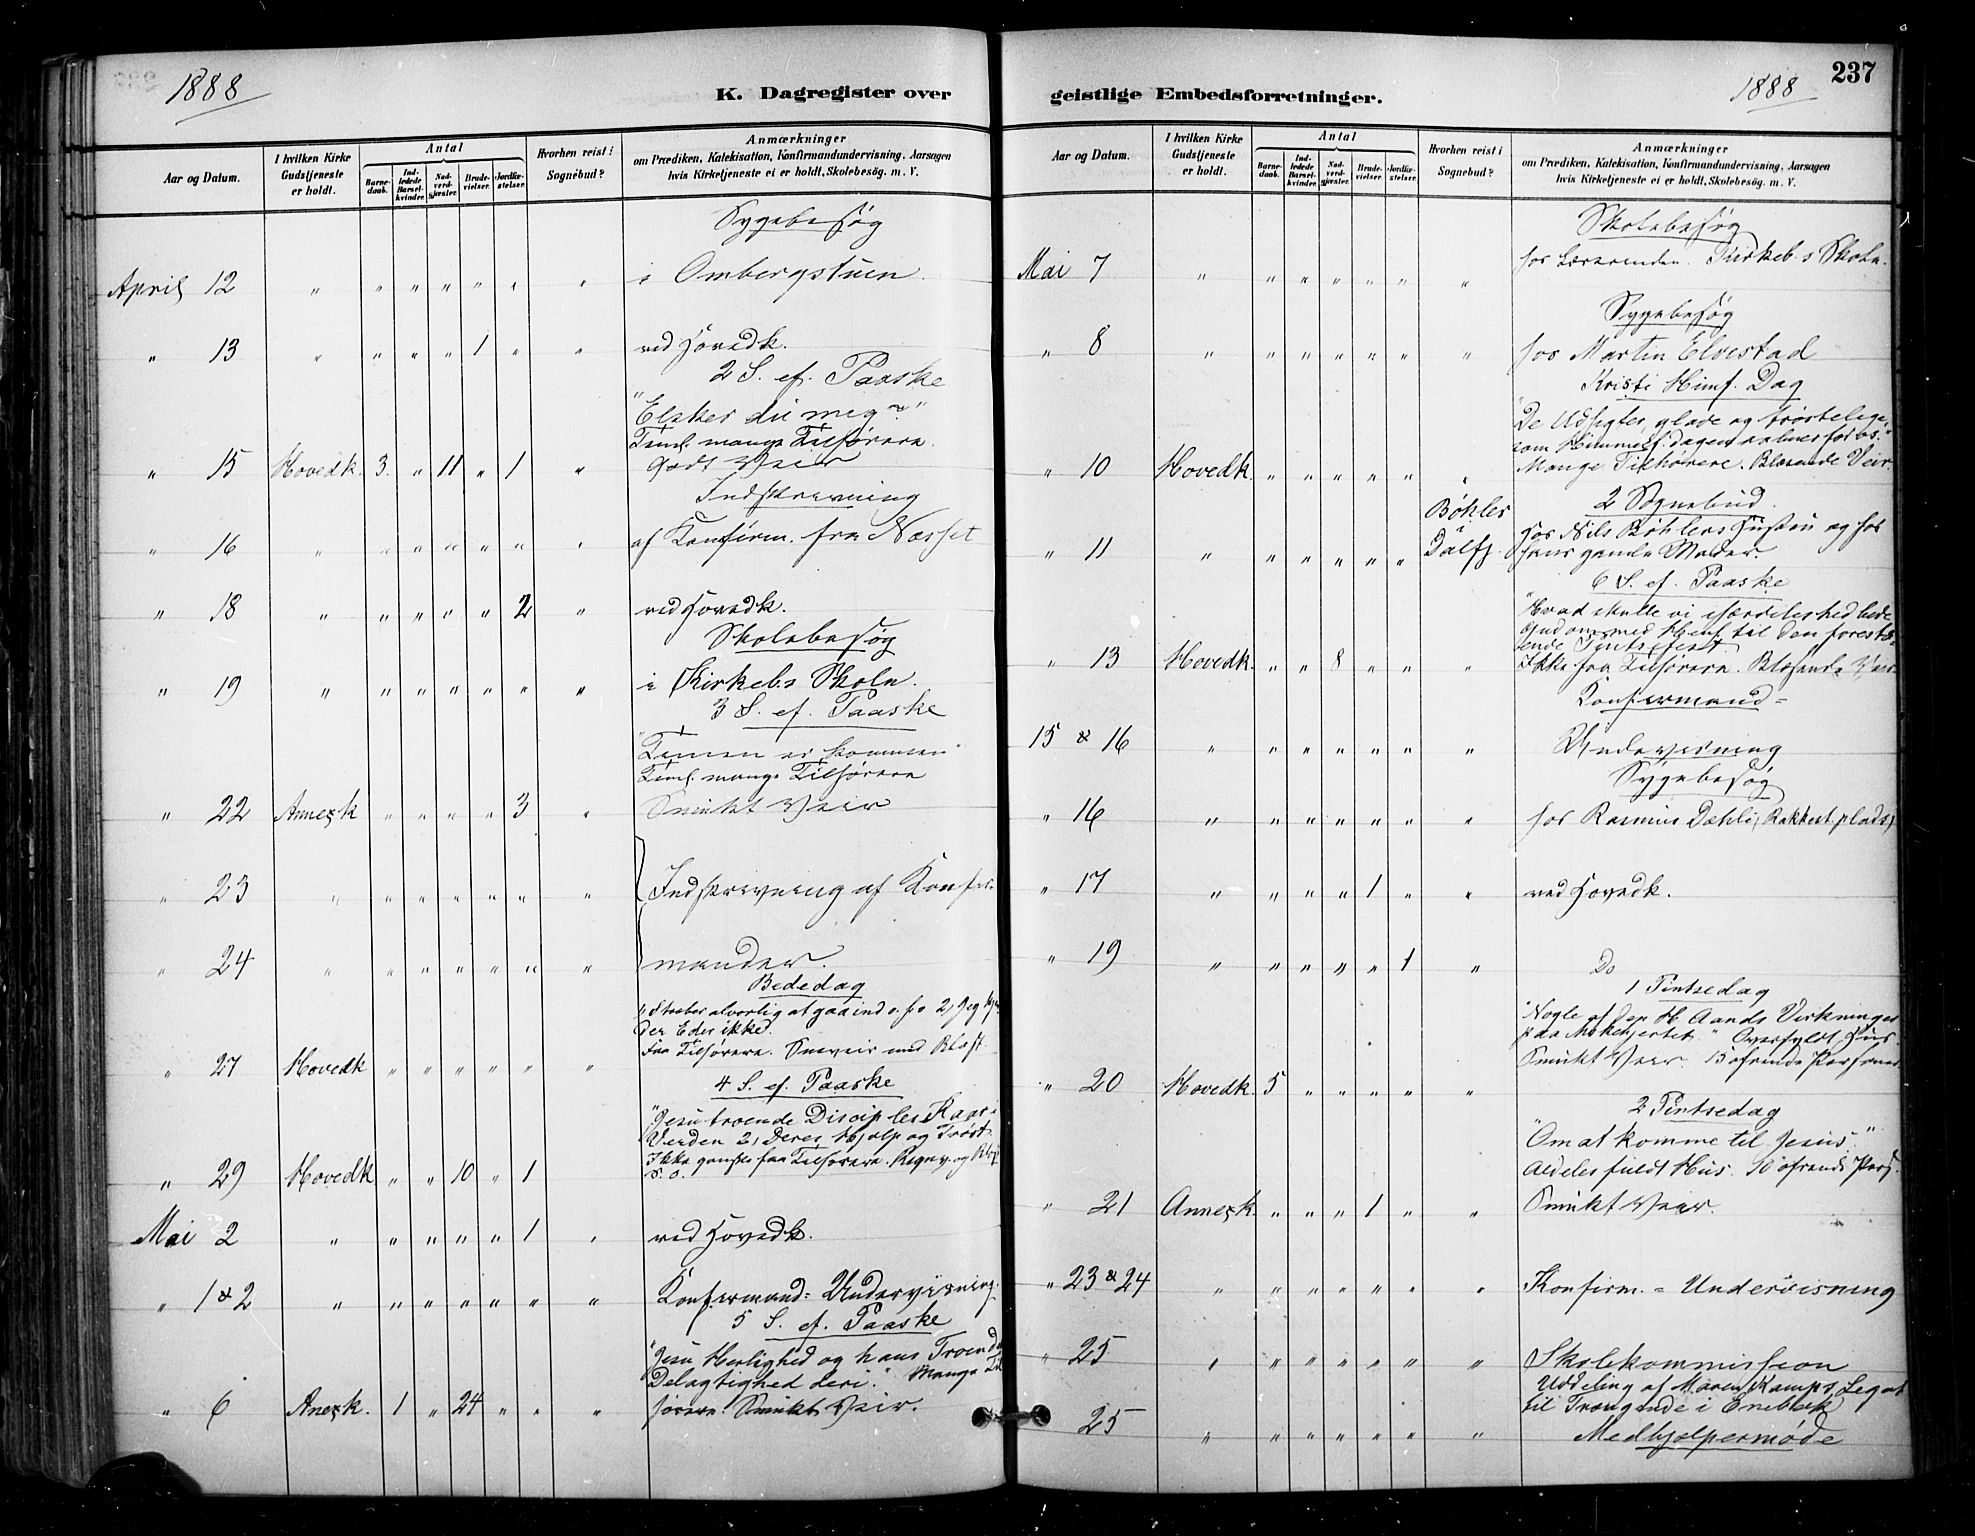 1888
K. Dagregister over
Aar og Datum.
I hvilken Kirke Gudstjeneste er holdt.
Antal
Barnedaab.
Indledede Barselkvinder.
Nadverdgjæster.
Brudevielser.
Jordfæstelser.
Hvorhen reist i Sognebud?
Anmærkninger
om Prædiken, Katekisation, Konfirmandundervisning, Aarsagen
hvis Kirketjeneste ei er holdt, Skolebesøg. m. V.
Sygebesøg
April 12 " " " " " " " i Ombergstuen.
" 13 " " " " 1 " " ved Hovedk.
2 S. ef. Paaske
"Elsker du mig?"
Teml. mange Tilhørere.
" 15 Hovedk. 3. " 11 " 1 " Godt Veir
Indskrivning
" 16 " " " " " " " af Konfirm. fra Næsset
" 18 " " " " " 2 " ved Hovedk.
Skolebesøg
" 19 " " " " " " " i Kirkeb.s Skole.
3 S. ef. Paaske
"Timen er kommen"
Teml. mange Tilhørere
" 22 Annexk " " " " 3 " Smukt Veir
" 23 " " " " " " " Indskrivning af Konfir-
" 24 " " " " " " " mander.
Bededag
der Eder ikke.
" 27 Hovedk " " " " " " Faa Tilhørere. Sneveir med Blæst
4 S. ef. Paaske
"Jesu troende Disciples Kaar i
Verden 2, Deres Hjælp og Trøst.
Ikke ganske faa Tilhørere. Regnv. og
" 29 Hovedk " " 10 " 1
Mai 2 " " " " " 1 " ved Hovedk.
" 1 & 2 " " " " " " " Konfirmand-Undervisning.
5 S. ef. Paaske
"Jesu Herlighed og hans Troendes
Delagtighed deri." Mange Til
" 6 Anexk. 1 " 24 " " " hørere. Smukt Veir.
237
1888
geistlige Embedsforretninger.
Aar og Datum.
I hvilken Kirke Gudstjeneste er holdt.
Antal
Barnedaab.
Indledede Barselkvinder.
Nadverdgjæster.
Brudevielser.
Jordfæstelser.
Hvorhen reist i Sognebud?
Anmærkninger
om Prædiken, Katekisation, Konfirmandundervisning, Aarsagen
hvis Kirketjeneste ei er holdt, Skolebesøg. m. V.
Skolebesøg
Mai 7 " " " " " " " hos Lærerinden. Kirkeb.s Skole.
Sygebesøg
" 8 " " " " " " " hos Martin Elvestad
Kristi Himf. Dag
"De Udsigter, glade og trøstelige,
som Himmelf.dagen aabner for os."
" 10 Hovedk. " " " " " " Mange Tilhørere. Blæsende Veir
2 Sognebud.
" 11 " " " " " " Bøhler i Dalfj. hos Nils Bøhlers Hustru og hos
hans gamle Moder.
6 S. ef. Paaske
"Hvad skulle vi særdeleshed bede
Gud om med Hens. til den forestaa-
ende Pintsefest
" 13 Hovedk. " " 8 " " " Ikke faa Tilhørere. Blæsende Veir.
Konfirmand-
15 & 16 " " " " " " " Undervisning
Sygebesøg
" 16 " " " " " " " hos Rasmus Dæhli (Rakkest.plads)
" 17 " " " " 1 " " ved Hovedk.
" 19 " " " " " 1 " Do
1 Pintsedag
"Nogle af den H Aands Virkninger
paa Msk.hjertet." Overfyldt Hus
Smukt Veir. 15 ofrende Personer
" 20 Hovedk. 5 " " " " "
2 Pintsedag
"Om at komme til Jesus."
Aldeles fuldt Hus. 10 ofrende Pers.
" 21 Annexk. " " " 1 " " Smukt Veir.
" 23 & 24 " " " " " " " Konfirm.-Undervisning
" 25 " " " " " " " Skolekommission
Uddeling af Maren Kamps Legat
til Trængende i Enebak
25 " " " " " " " Medhjælpermøde